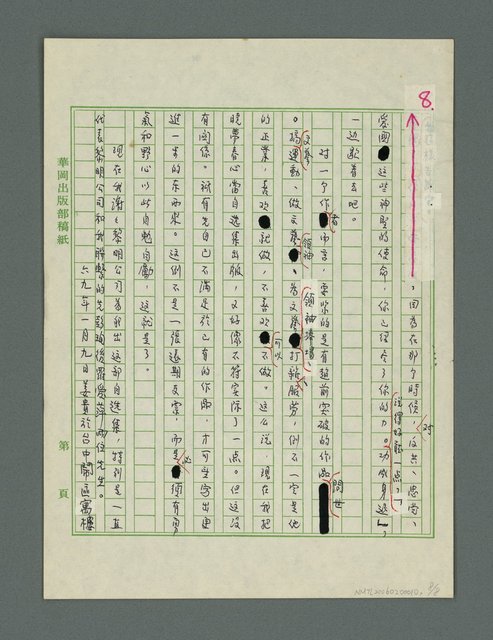 8.
，因為在那個時候，反共、思嘗、
對
愛國 這些神聖的使命，你已經盡了你的力。功成身退」，
說得好聽一點，「
一邊歇着去吧。
對一個作 而言，要緊的是有超前突破的作品
者
問世
。搞運動、做文藝 、為文藝 打雜服勞，倒不一定是他
文藝
領袖
領袖捧場、
的正業，喜歡 就做，不喜歡 不做。這么說，現在我把
可以
曉夢春心當自選集出版，又好像不符實際了一点。但這沒
有關係。祇有先自己不滿足於已有的作品，才可望寫出更
進一步的東西來。這倒不是一張遠期支票，而是 須有勇
必
氣和野心以此自勉自勵，這就是了。
現在我謝謝黎明公司為我出這部自選集，特別是一直
代表黎明公司和我聯繫的
六九年一月九日姜貴於台中鬧區寓樓
華岡出版部稿紙
第 頁
NMTL20060200010
8/8